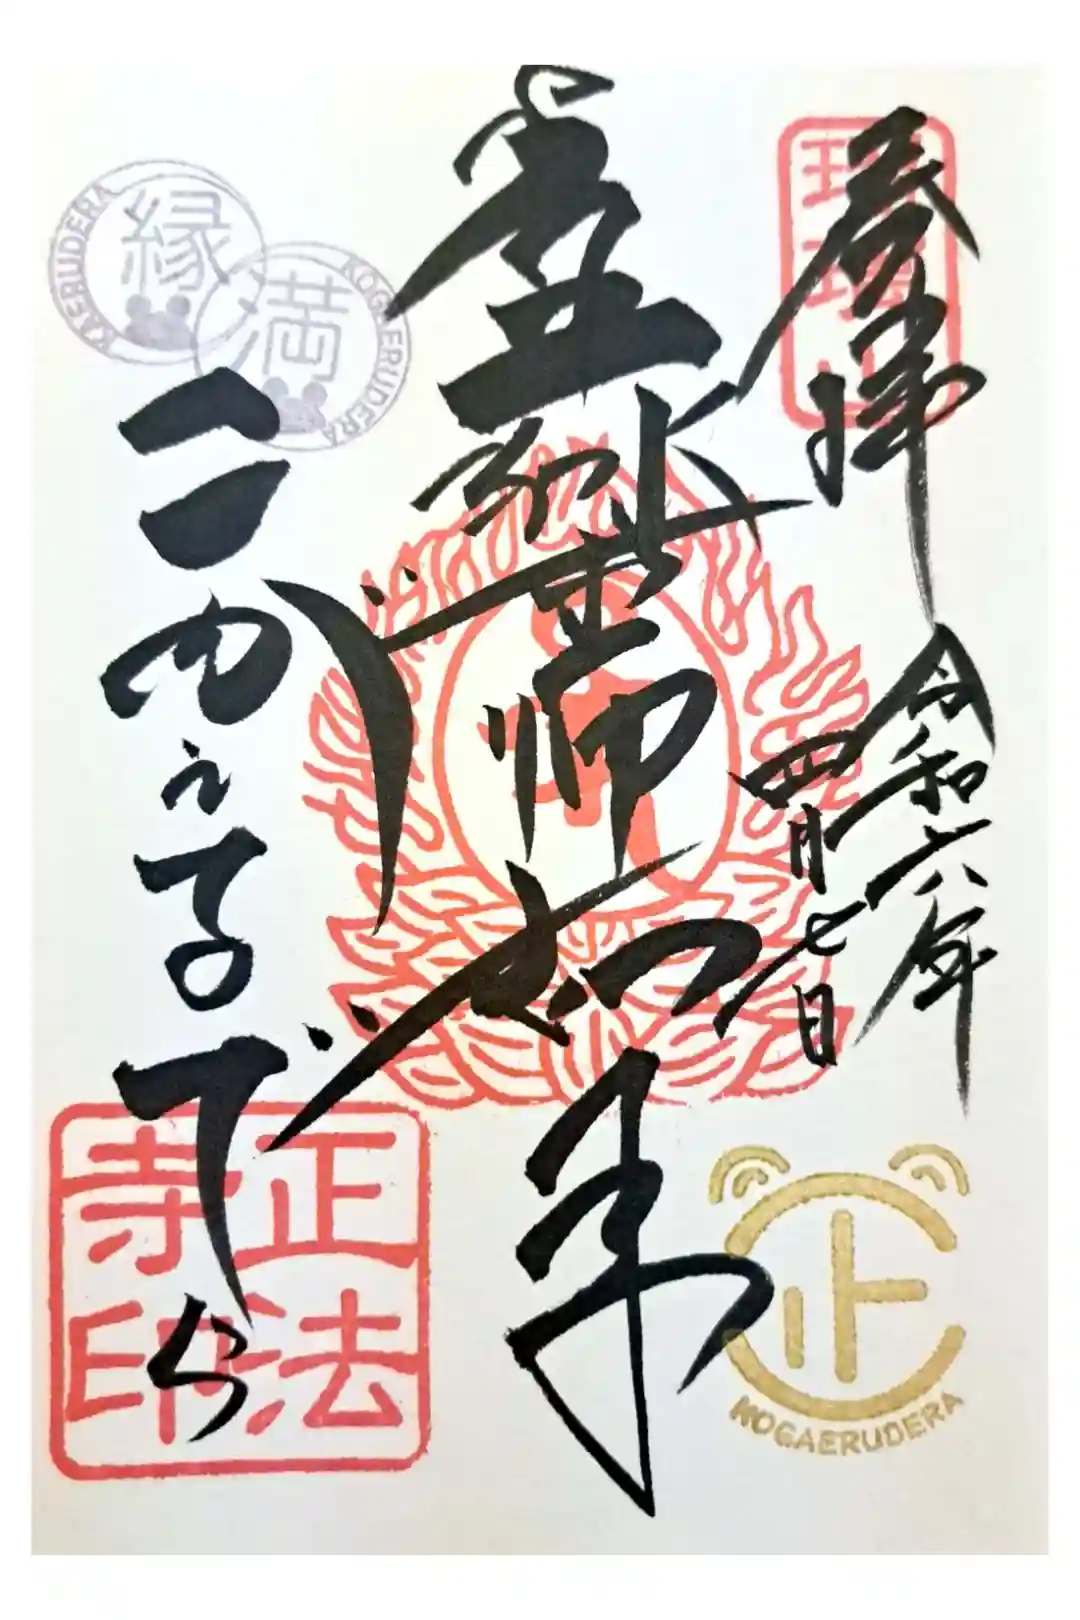 奉拝
瑠璃山
令和六年
四月七日
薬師如来
こがえるでら
縁
KAERUDERA
満
KOGAERUDERA
正法寺印
正
KOGAERUDERA